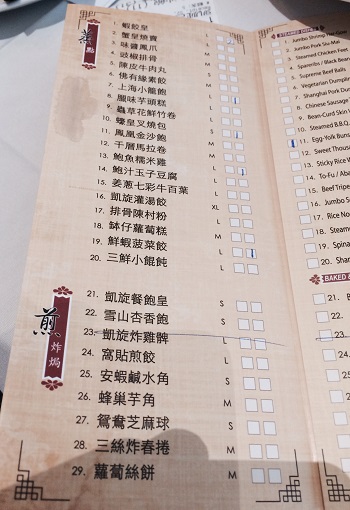 蒸
點
1. 蝦餃皇 M
2. 蟹皇燒賣 L
3. 味醬鳳爪 M
4. 豉椒排骨 M
5. 陳皮牛肉丸 M
6. 佛有緣素餃 M
7. 上海小籠飽 L
8. 臘味芋頭糕 L
9. 蟲草花鮮竹卷 L
10. 蠔皇叉燒包 L
11. 鳳凰金沙飽 L
12. 千層馬拉卷 M
13. 鮑魚糯米雞 L
14. 鮑汁玉子豆腐 L
15. 姜蔥七彩牛百葉 L
16. 凱旋灌湯餃 XL
17. 排骨陳村粉 L
18. 缽仔蘿蔔糕 M
19. 鮮蝦菠菜餃 L
20. 三鮮小餛飩 L
煎
炸焗
21. 凱旋餐飽皇 S
22. 雪山杏香飽 S
23. 凱旋炸雞髀 L
24. 窩貼煎餃 L
25. 安蝦鹹水角 S
26. 蜂巢芋角 M
27. 鴛鴦芝麻球 S
28. 三絲炸春捲 M
29. 蘿蔔絲餅 M
1. Jumbo Shrimp Har-Gow
2. Jumbo Pork Siu-Mai
3. Steamed Chicken Feet
4. Spareribs / Black Bean
5. Supreme Beef Balls
6. Vegetarian Dumplin
7. Shanghai Pork Du
8. Chinese Sausage
9. Bean-Curd Skin
10. Steamed B.B.Q.
11. Egg-Yolk Buns
12. Sweet Thous
13. Sticky Rice
14. To-Fu / Ab
15. Beef Tripe
16. Jumbo S
17. Rice Ro
18. Stea
19. Spina
20. Shan
BAKED &
21.
22.
23.
24.
25.
26
27
2